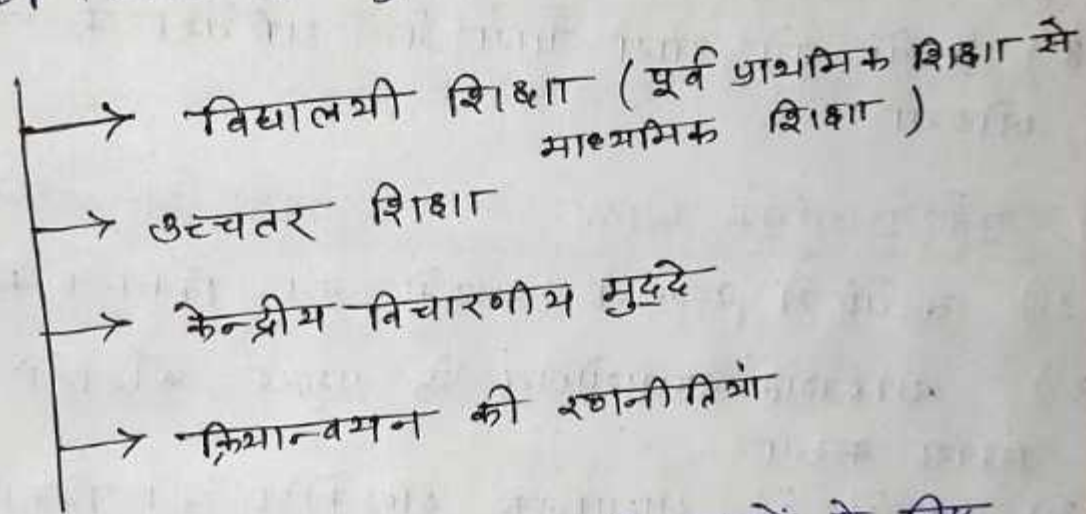 → विद्यालयी शिक्षा (पूर्व प्राथमिक शिक्षा से
माध्यमिक शिक्षा)
→ उच्चतर शिक्षा
→ केन्द्रीय विचारणीय मुद्दे
→ क्रियान्वयन की रणनीतियां